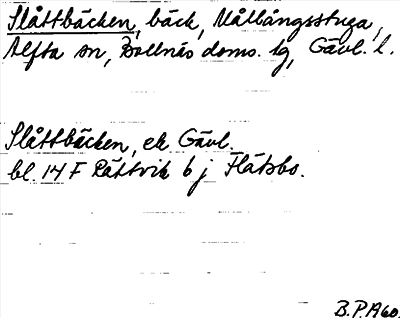 Slåttbäcken, bäck, Målbångsstuga,
Alfta sn, Bollnäs doms. lg, Gävl. l.
Slåttbäcken, ek Gävl.
bl. 14 F Rättvik b j Flätsbo.
B.P. A60.